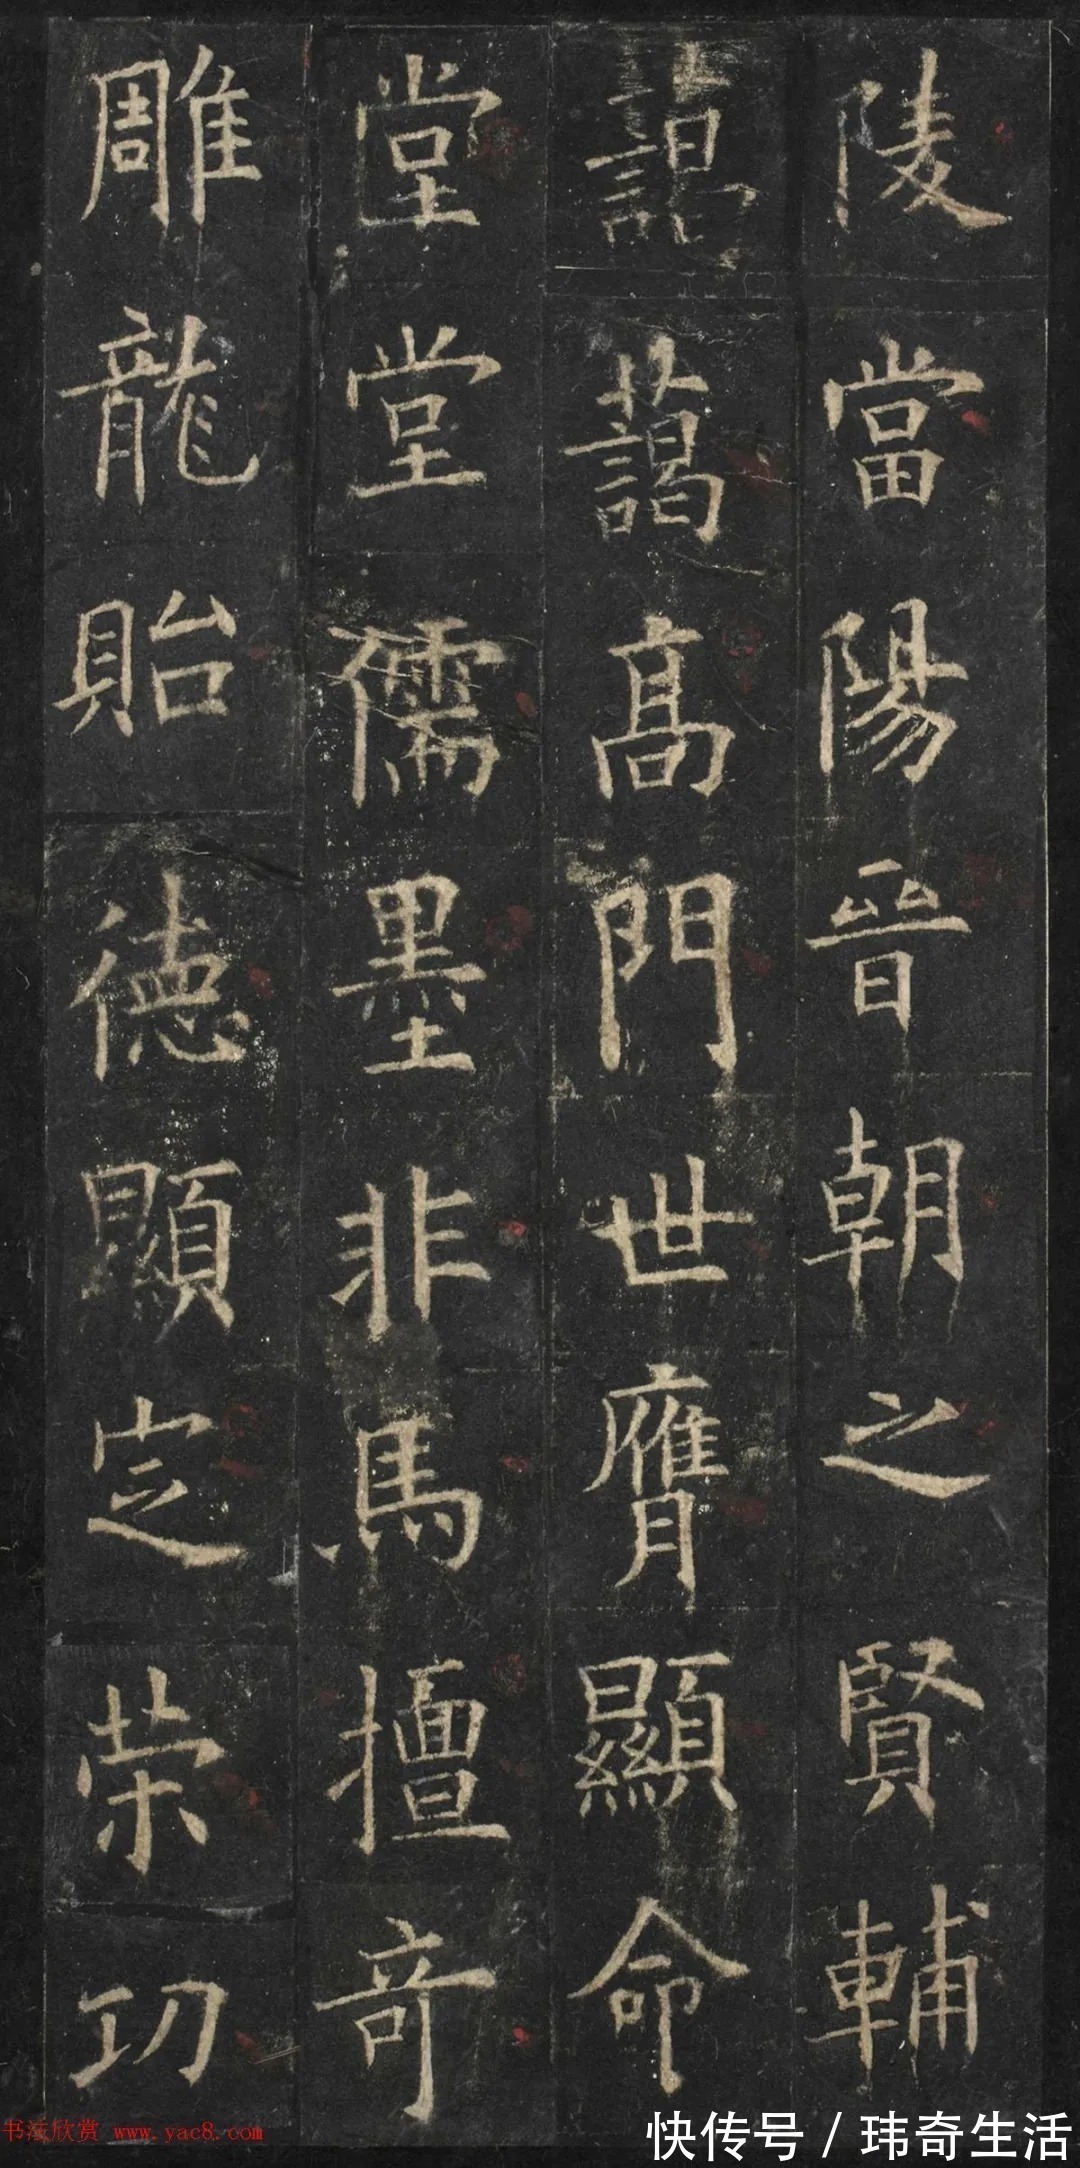 陵當陽晉朝之賢輔
藹藹高門世膺顯命
堂堂儒墨非馬擅奇
雕龍貽德顯定荣功
书法欣赏 www.yac8.com
快传号 / 玮奇生活